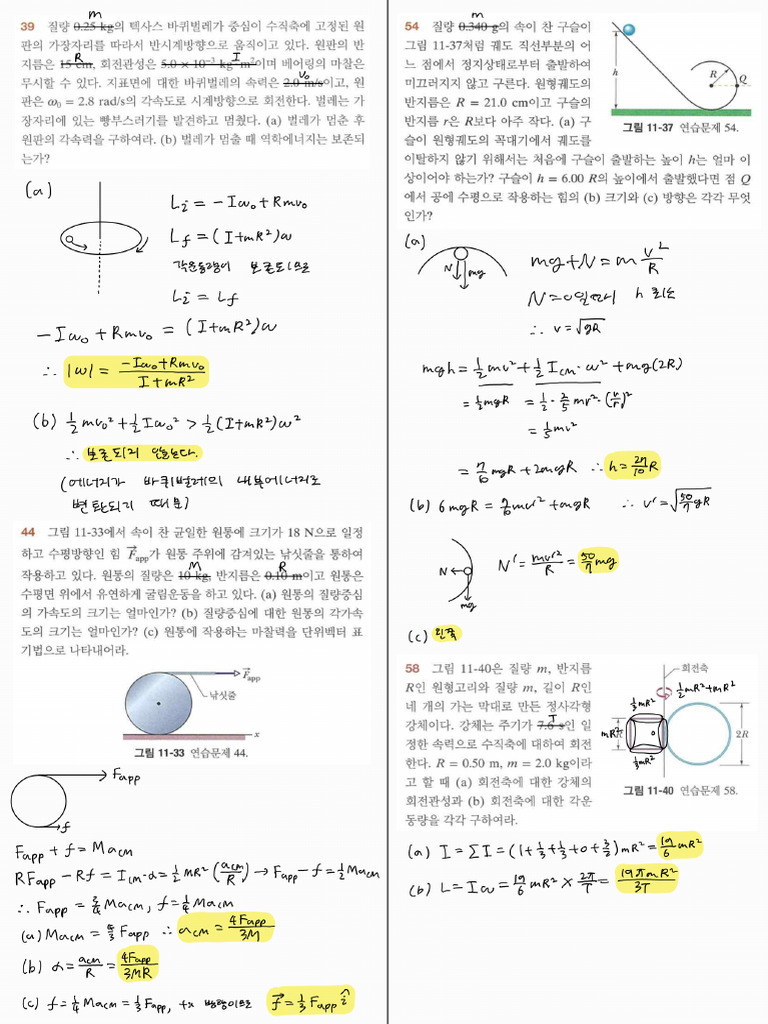 m
39 질량 0.25 kg의 텍사스 바퀴벌레가 중심이 수직축에 고정된 원
판의 가장자리를 따라서 반시계방향으로 움직이고 있다. 원판의 반
R
I
지름은 15 cm, 회전관성은 5.0 × 10⁻³ kg·m²이며 베어링의 마찰은
v₀
무시할 수 있다. 지표면에 대한 바퀴벌레의 속력은 2.0 m/s이고, 원
판은 ω₀ = 2.8 rad/s의 각속도로 시계방향으로 회전한다. 벌레는 가
장자리에 있는 빵부스러기를 발견하고 멈췄다. (a) 벌레가 멈춘 후
원판의 각속력을 구하여라. (b) 벌레가 멈출 때 역학에너지는 보존되
는가?
(a)
Li = -Iω₀ + Rmv₀
Lf = (I+mR²)ω
각운동량이 보존되므로
Li = Lf
-Iω₀ + Rmv₀ = (I+mR²)ω
∴ |ω| = (-Iω₀+Rmv₀)/(I+mR²)
(b) ½mv₀² + ½Iω₀² > ½(I+mR²)ω²
∴ 보존되지 않는다.
(에너지가 바퀴벌레의 내부에너지로
변환되기 때문)
44 그림 11-33에서 속이 찬 균일한 원통에 크기가 18 N으로 일정
하고 수평방향인 힘 F⃗app가 원통 주위에 감겨있는 낚싯줄을 통하여
M
R
작용하고 있다. 원통의 질량은 10 kg, 반지름은 0.10 m이고 원통은
수평면 위에서 유연하게 굴림운동을 하고 있다. (a) 원통의 질량중심
의 가속도의 크기는 얼마인가? (b) 질량중심에 대한 원통의 각가속
도의 크기는 얼마인가? (c) 원통에 작용하는 마찰력을 단위벡터 표
기법으로 나타내어라.
F⃗app
낚싯줄
x
그림 11-33 연습문제 44.
Fapp
f
Fapp + f = Macm
RFapp - Rf = Icm·α = ½MR²(acm/R) → Fapp - f = ½Macm
∴ Fapp = ¾Macm, f = ¼Macm
(a) Macm = 4/3 Fapp ∴ acm = 4Fapp/3M
(b) α = acm/R = 4Fapp/3MR
(c) f = ¼Macm = ⅓Fapp, +x 방향이므로 f⃗ = ⅓Fapp î
m
54 질량 0.340 g의 속이 찬 구슬이
그림 11-37처럼 궤도 직선부분의 어
느 점에서 정지상태로부터 출발하여
미끄러지지 않고 구른다. 원형궤도의
반지름은 R = 21.0 cm이고 구슬의
반지름 r은 R보다 아주 작다. (a) 구
슬이 원형궤도의 꼭대기에서 궤도를
이탈하지 않기 위해서는 처음에 구슬이 출발하는 높이 h는 얼마 이
상이어야 하는가? 구슬이 h = 6.00 R의 높이에서 출발했다면 점 Q
에서 공에 수평으로 작용하는 힘의 (b) 크기와 (c) 방향은 각각 무엇
인가?
h
R
Q
그림 11-37 연습문제 54.
(a)
N
mg
mg+N = m v²/R
N=0일때 h 최소
∴ v = √gR
mgh = ½mv² + ½Icm·ω² + mg(2R)
= ½mgR = ½·⅖mr²·(v/r)²
= ⅕mv²
= 7/10 mgR + 2mgR ∴ h = 27/10 R
(b) 6mgR = 7/10 mv'² + mgR ∴ v' = √(50/7 gR)
N
mg
N' = mv'²/R = 50/7 mg
(c) 왼쪽
58 그림 11-40은 질량 m, 반지름
R인 원형고리와 질량 m, 길이 R인
네 개의 가는 막대로 만든 정사각형
T
강체이다. 강체는 주기가 7.6 s인 일
정한 속력으로 수직축에 대하여 회전
한다. R = 0.50 m, m = 2.0 kg이라
고 할 때 (a) 회전축에 대한 강체의
회전관성과 (b) 회전축에 대한 각운
동량을 각각 구하여라.
회전축
⅓mR²
½mR²+mR²
mR²
0
2R
⅓mR²
그림 11-40 연습문제 58.
(a) I = ΣI = (1+⅓+⅓+0+3/2)mR² = 19/6 mR²
(b) L = Iω = 19/6 mR² × 2π/T = 19πmR²/3T